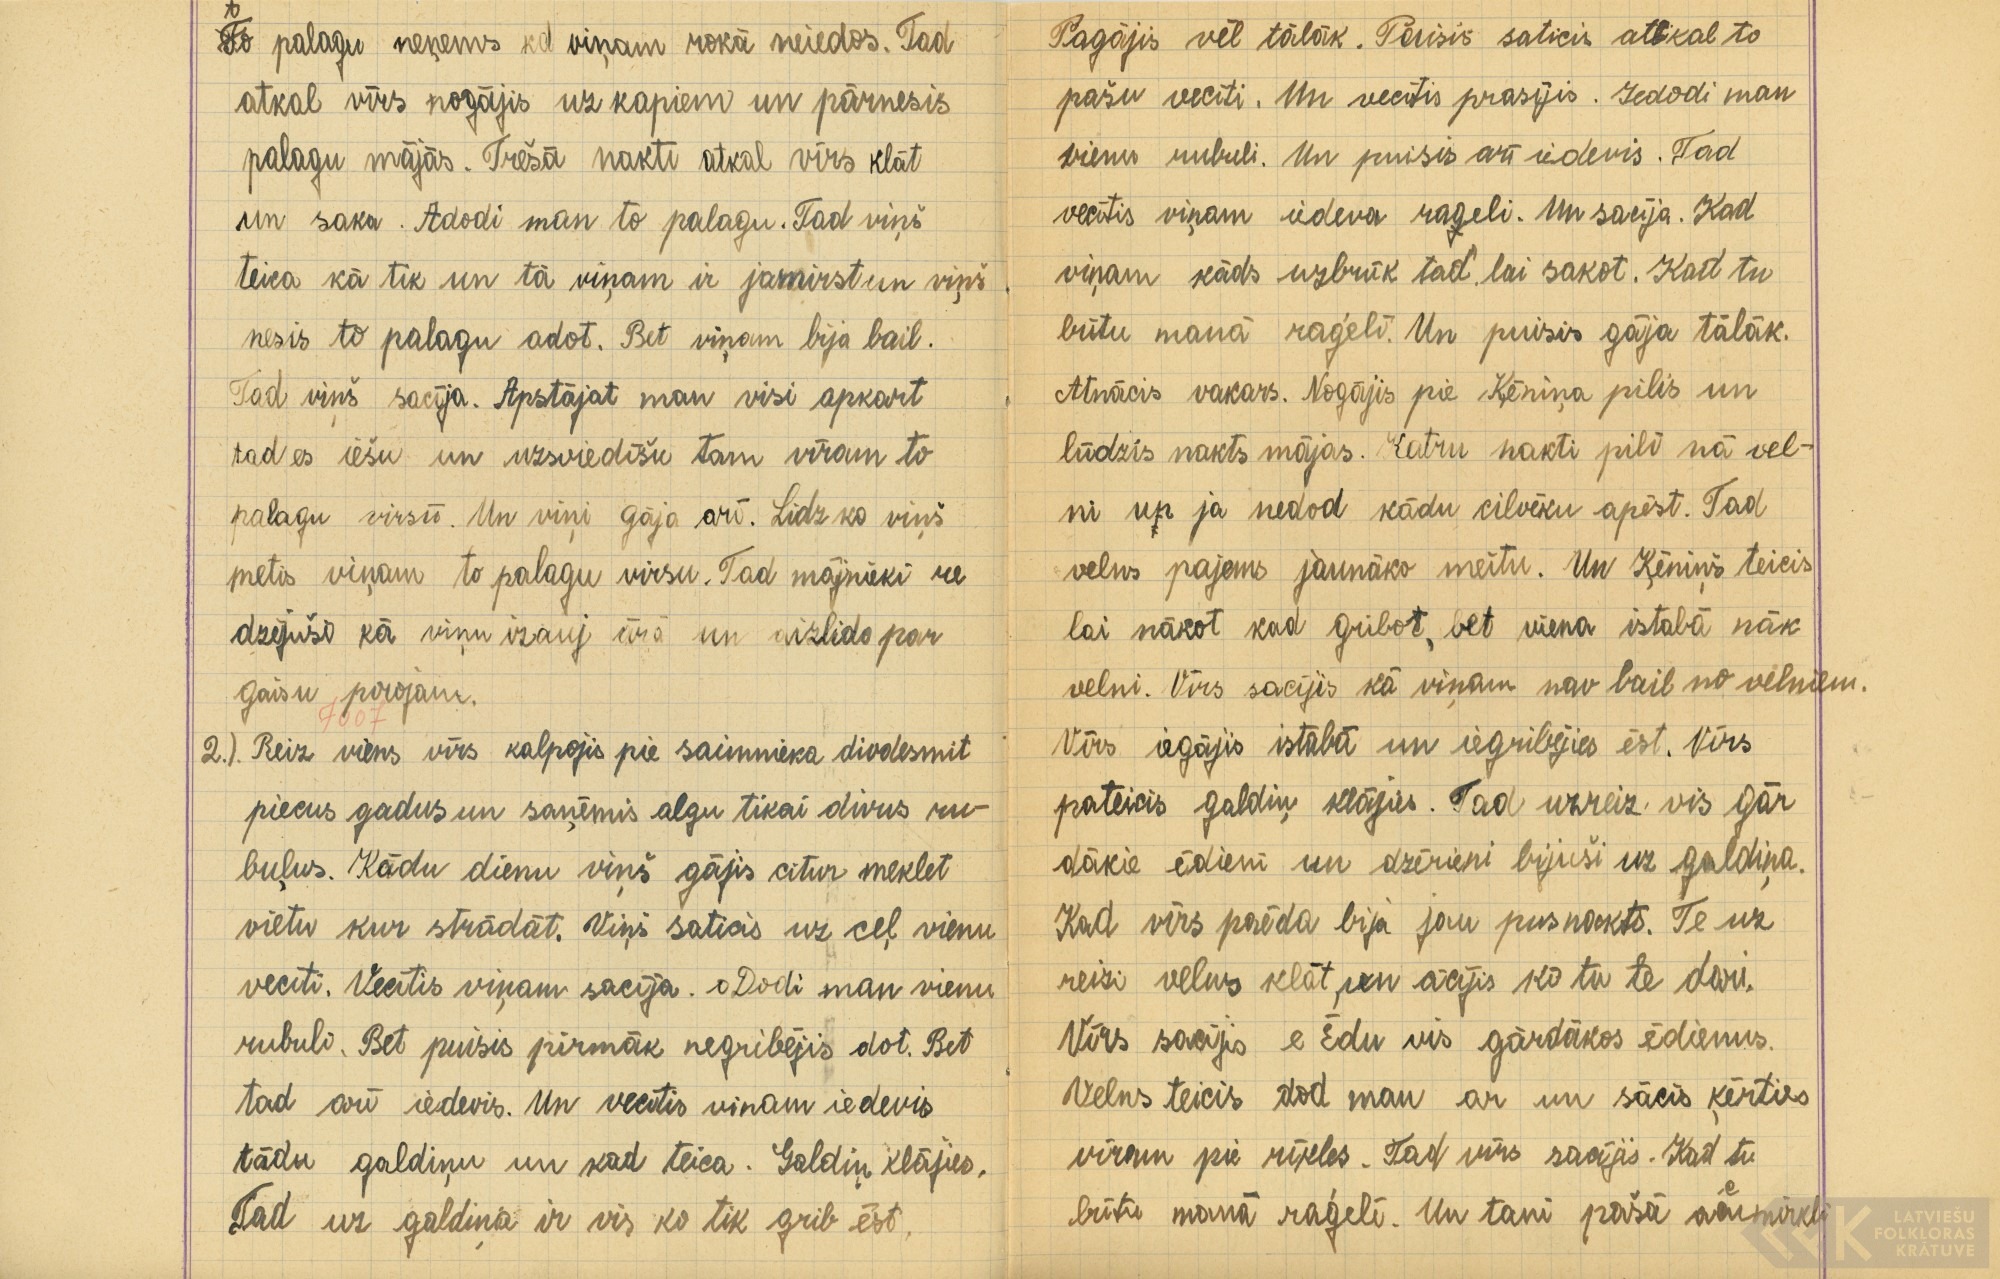 to palagu neņems kd viņam rokā neiedos. Tad
atkal vīrs nogājis uz kapiem un pārnesis
palagu mājās. Trešā naktī atkal vīrs klāt
un saka. Adodi man to palagu. Tad viņš
teica kā tik un tā viņam ir jamirst un viņš
nesis to palagu adot. Bet viņam bija bail.
Tad viņš sacīja. Apstājat man visi apkart
tad es iešu un uzsviedīšu tam vīram to
palagu virsū. Un viņi gāja arī. Lidz ko viņš
metis viņam to palagu virsu. Tad mājnieki re
dzējuši kā viņu izauj ārā un aizlido par
gaisu projam.
7007
2.). Reiz viens vīrs kalpojis pie saimnieka divdesmit
piecus gadus un saņēmis algu tikai divus ru-
buļus. Kādu dienu viņš gājis citur meklet
vietu kur strādāt. Viņš saticis uz ceļ vienu
vecīti. Vecītis viņam sacīja. Dodi man vienu
rubuli. Bet puisis pirmāk negribējis dot. Bet
tad arī iedevis. Un vecītis viņam iedevis
tādu galdiņu un kad teica. Galdiņ klājies.
Tad uz galdiņa ir vis ko tik grib ēst.
Pagājis vēl tālāk. Puisis saticis atkal to
pašu vecīti. Un vecītis prasījis. Iedodi man
vienu rubuli. Un puisis arī iedevis. Tad
vecītis viņam iedeva rageli. Un sacīja. Kad
viņam kāds uzbrūk tad lai sakot. Kad tu
būtu manā raģelī. Un puisis gāja tālāk.
Atnācis vakars. Nogājis pie Ķēniņa pilis un
lūdzis nakts mājas. Katru nakti pilī nā vel-
ni un ja nedod kādu cilvēku apēst. Tad
velns pajems jaunāko meitu. Un Ķēniņš teicis
lai nākot kad gribot, bet viena istabā nāk
velni. Vīrs sacījis kā viņam nav bail no velniem.
Vīrs iegājis istabā un iegribējies ēst. Vīrs
pateicis galdiņ klājies. Tad uzreiz vis gār
dākie ēdieni un dzērieni bijuši uz galdiņa.
Kad vīrs paēda bija jau pusnakts. Te uz
reizi velns klāt, un ācījis ko tu te dari.
Vīrs sacījis e Ēdu vis gārdākos ēdienus.
Velns teicis dod man ar un sācis ķērties
vīram pie rīkles. Tad vīrs sacījis. Kad tu
būtu manā raģelī. Un tani pašā acumirklī
LATVIEŠU
FOLKLORAS
KRĀTUVE